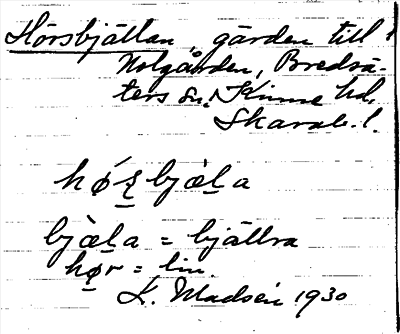 Hörsbjällan, gärden till
Nolgården, Bredsä-
ters sn, Kinne hd,
Skarab. l.
hǿʂbjæ̀ḷa
bjæ̀ḷa = bjällra
hø̱r = lin.
K. Madsén 1930